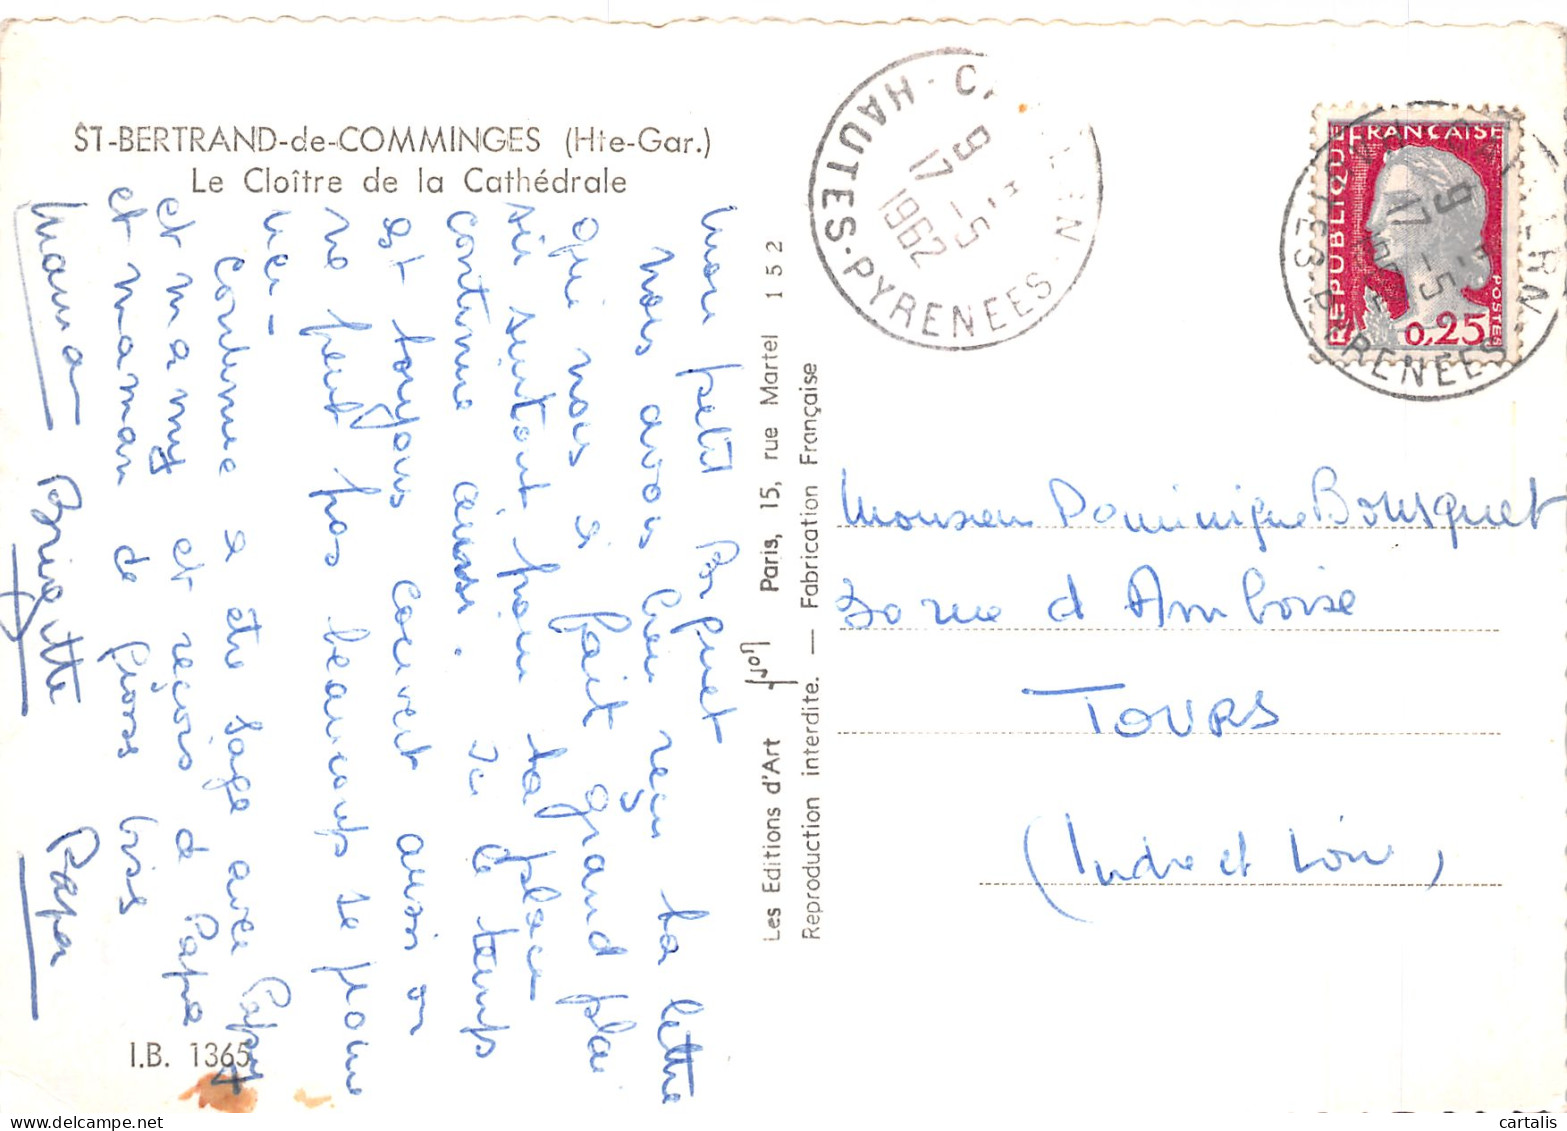 ST-BERTRAND-de-COMMINGES (Hte-Gar.)
Le Cloître de la Cathédrale
mon petit
nous avons bien reçu ta lettre
qui nous a fait grand plai
sir surtout pour ta place
continue ainsi. Ici le temps
est toujours couvert aussi on
ne peut pas beaucoup se prome
ner -
Continue a être sage avec Papy
et mamy et reçois de Papa
et maman de grosses bises
Maman Brigitte Papa
I.B. 1365
Les Editions d'Art Yvon Paris, 15, rue Martel 152
Reproduction interdite. — Fabrication Française
HAUTES-PYRENEES
17 H
9 -5
1962
REPUBLIQUE FRANÇAISE
POSTES
0,25
PYRENEES
17
9 -5
Monsieur Dominique Bousquet
30 rue d Amboise
TOURS
(Indre et Loire)
cartalis